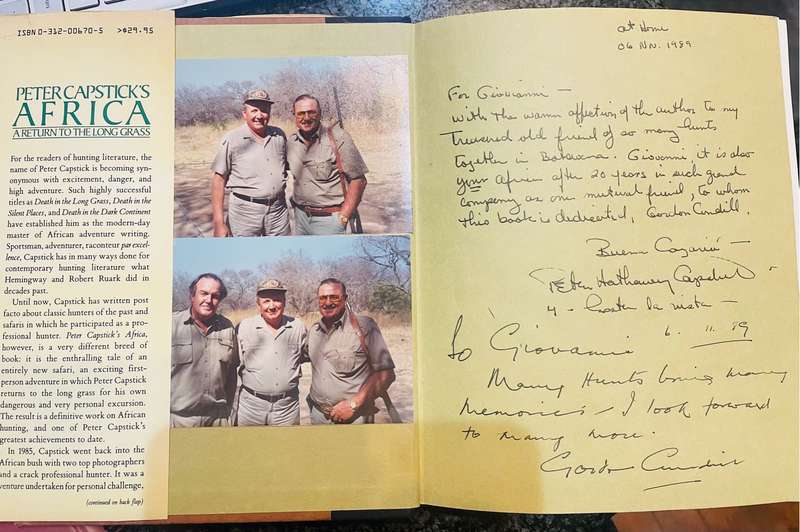 ISBN 0-312-00670-5 >$29.95
PETER CAPSTICK'S
AFRICA
A RETURN TO THE LONG GRASS
For the readers of hunting literature, the
name of Peter Capstick is becoming syn-
onymous with excitement, danger, and
high adventure. Such highly successful
titles as Death in the Long Grass, Death in the
Silent Places, and Death in the Dark Continent
have established him as the modern-day
master of African adventure writing.
Sportsman, adventurer, raconteur par excel-
lence, Capstick has in many ways done for
contemporary hunting literature what
Hemingway and Robert Ruark did in
decades past.
Until now, Capstick has written post
facto about classic hunters of the past and
safaris in which he participated as a pro-
fessional hunter. Peter Capstick's Africa,
however, is a very different breed of
book: it is the enthralling tale of an
entirely new safari, an exciting first-
person adventure in which Peter Capstick
returns to the long grass for his own
dangerous and very personal excursion.
The result is a definitive work on African
hunting, and one of Peter Capstick's
greatest achievements to date.
In 1985, Capstick went back into the
African bush with two top photographers
and a crack professional hunter. It was a
venture undertaken for personal challenge,
(continued on back flap)
at Home
06 Nov. 1989
For Giovanni —
With the warm affection of the author to my
treasured old friend of so many hunts
together in Botswana. Giovanni, it is also
your Africa after 20 years in such grand
company as our mutual friend, to whom
this book is dedicated, Gordon Cundill.
Buena Caceria —
Peter Hathaway Capstick
y - hasta la vista —
To Giovanni 6. 11. 89
Many Hunts bring many
memories - I look forward
to many more.
Gordon Cundill